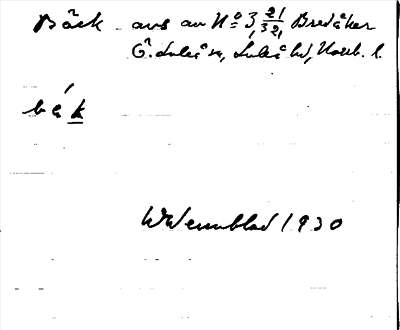 Bäck avs av Nº 3, 21/32, Bredåker
Ö. Luleå sn, Luleå hd, Norrb. l.
bák
W Wennblad 1930